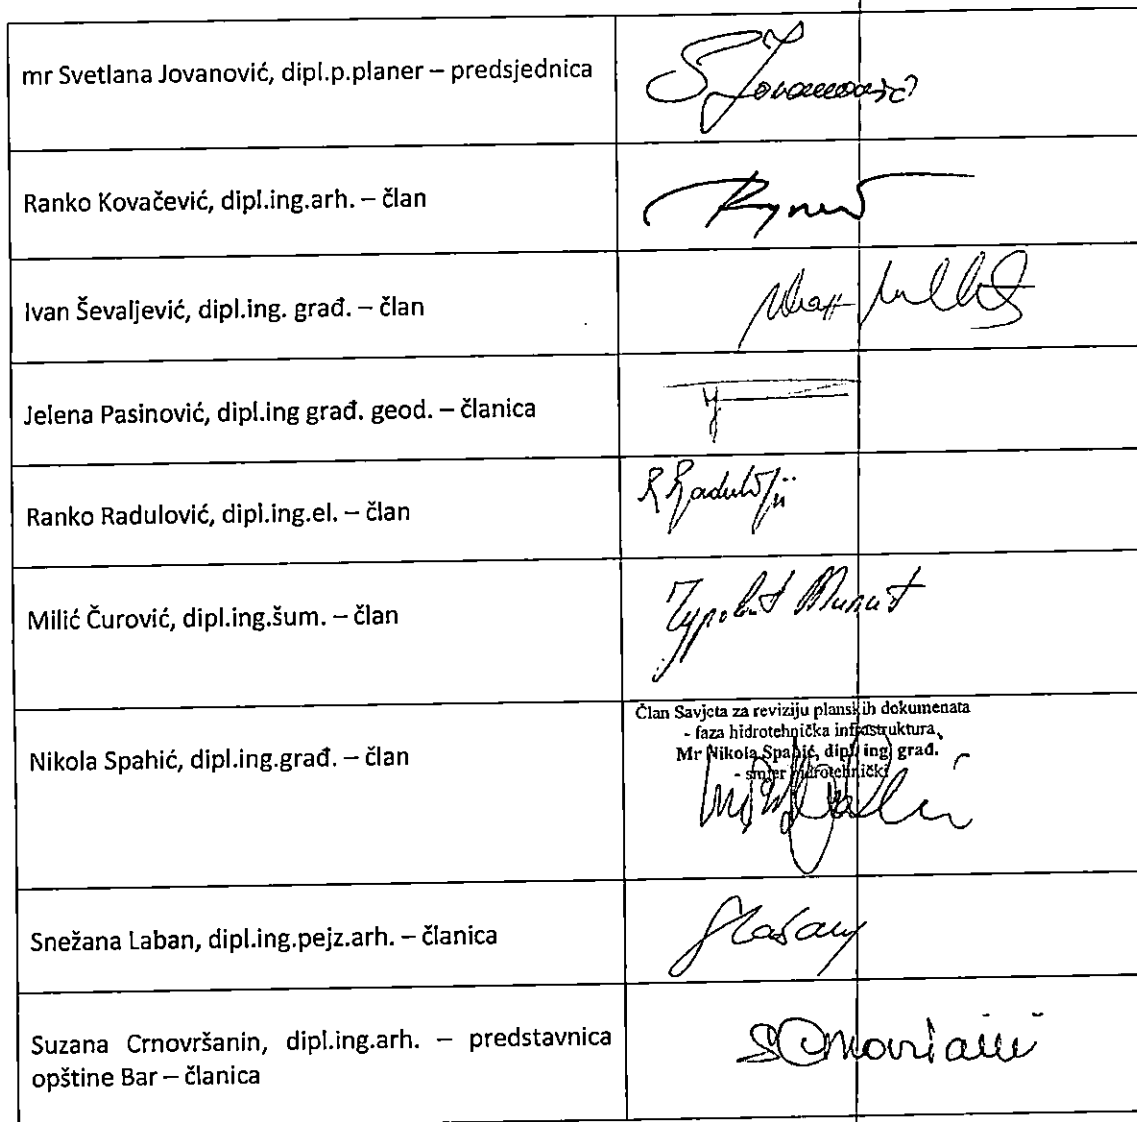 mr Svetlana Jovanović, dipl.p.planer – predsjednica
S Jovanović
Ranko Kovačević, dipl.ing.arh. – član
Ivan Ševaljević, dipl.ing. građ. – član
Jelena Pasinović, dipl.ing građ. geod. – članica
Ranko Radulović, dipl.ing.el. – član
Milić Čurović, dipl.ing.šum. – član
Član Savjeta za reviziju planskih dokumenata
- faza hidrotehnička infrastruktura,
Mr Nikola Spahić, dipl. ing. građ.
- smjer hidrotehnički
Nikola Spahić, dipl.ing.građ. – član
Snežana Laban, dipl.ing.pejz.arh. – članica
Suzana Crnovršanin, dipl.ing.arh. – predstavnica
opštine Bar – članica